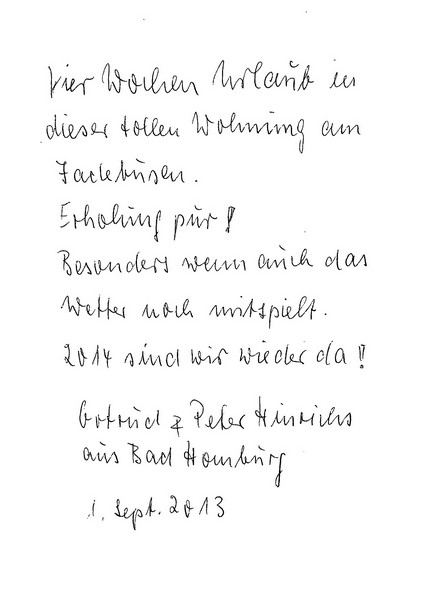 Vier Wochen Urlaub in
dieser tollen Wohnung am
Jadebusen.
Erholung pur!
Besonders wenn auch das
Wetter noch mitspielt.
2014 sind wir wieder da!!
& Peter Hinrichs
aus Bad Homburg
1. Sept. 2013